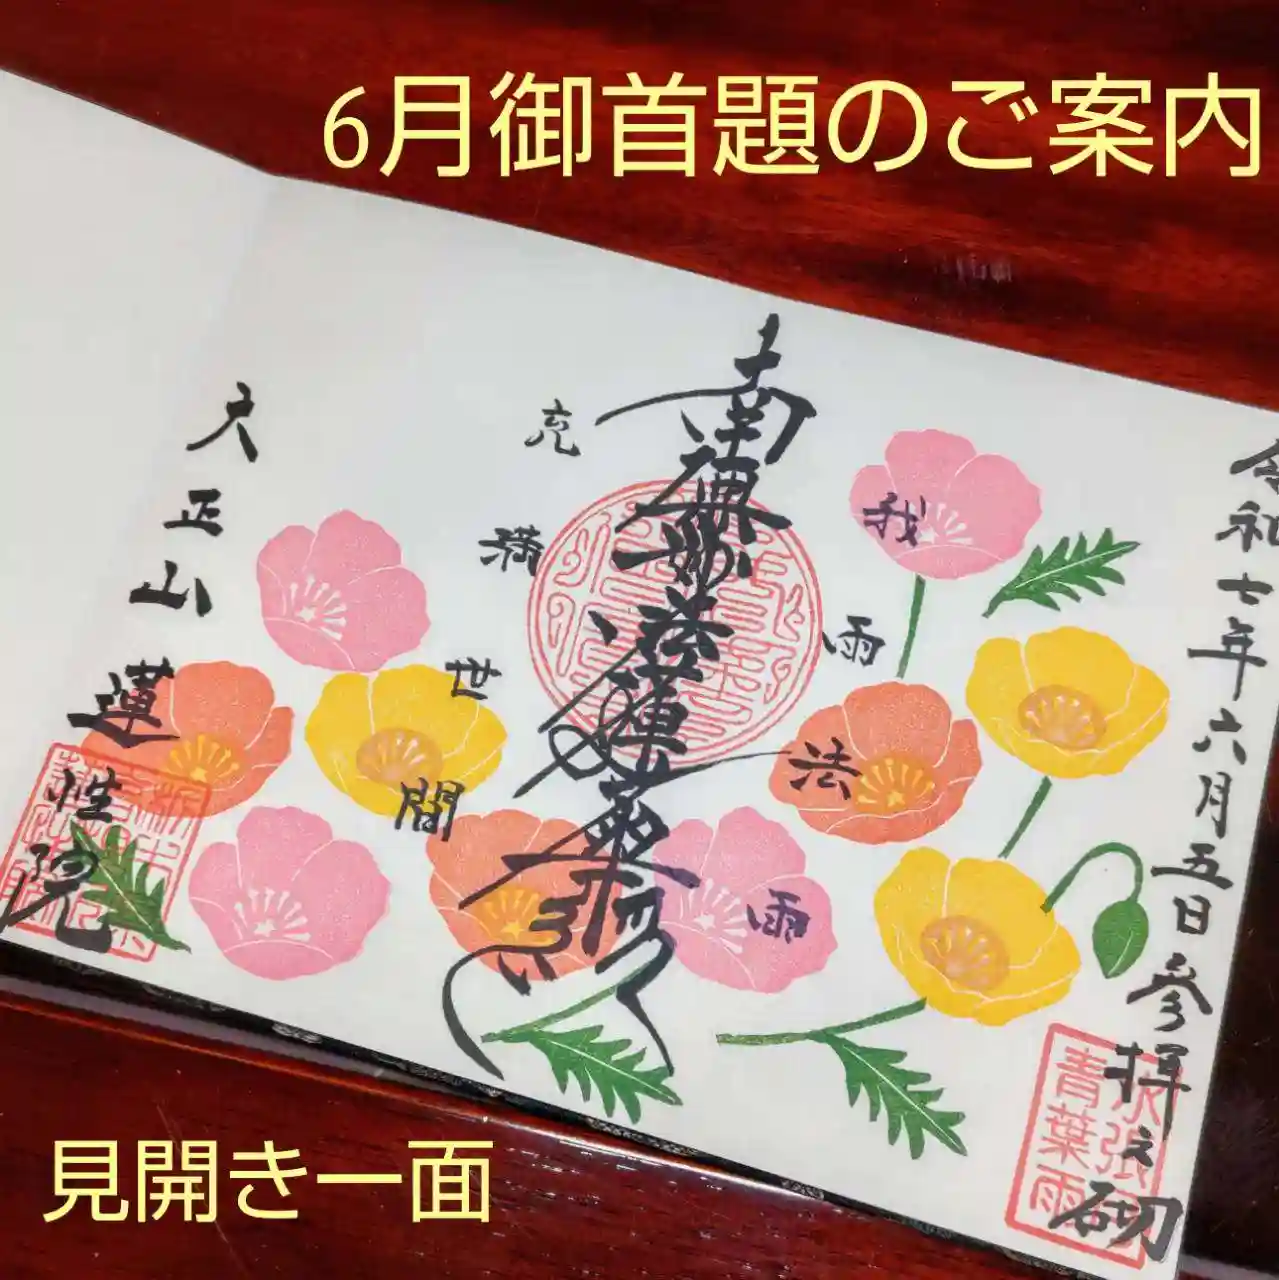 6月御首題のご案内
令和七年六月五日参拝之砌
我雨法雨
南無妙法蓮華経
充満世間
大正山
蓮性院
青葉雨
見開き一面